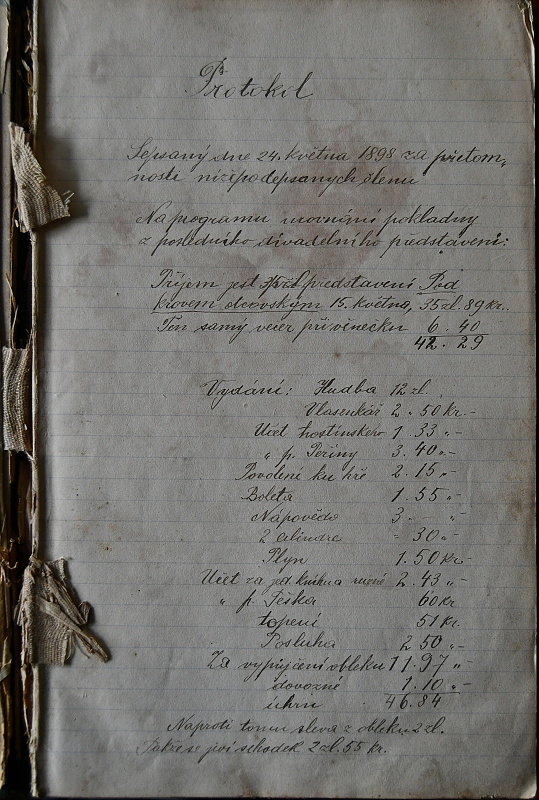 Protokol
Sepsaný dne 24. května 1898 za přítom-
nosti nížepodepsaných členu
Na programu srovnání pokladny
z posledního divadelního představení:
Příjem jest představení Pod
krovem otcovským 15. května, 35 zl. 89 kr.
Ten samý večer při věnečku 6. 40
42. 29
Vydání: Hudba 12 zl.
Vlasenkář 2. 50 kr. -
Účet hostinského 1. 33 „ -
„ p. Peřiny 3. 40 „ -
Povolení ku hře 2. 15 „ -
Boleta 1. 55 „ -
Nápověda 3. - „ -
2 cilindre - 30 „ -
Plyn 1. 50 kr -
Účet za jed. knihu a 2. 43 „ -
„ p. Ješka 60 kr
topení 51 kr.
Posluha 2 50 „ -
Za vypůjčení obleku 11. 97 „ -
dovozné 1. 10 „ -
úhrn 46. 84
Naproti tomu sleva z obleku 2 zl.
Takže se jeví schodek 2 zl. 55 kr.